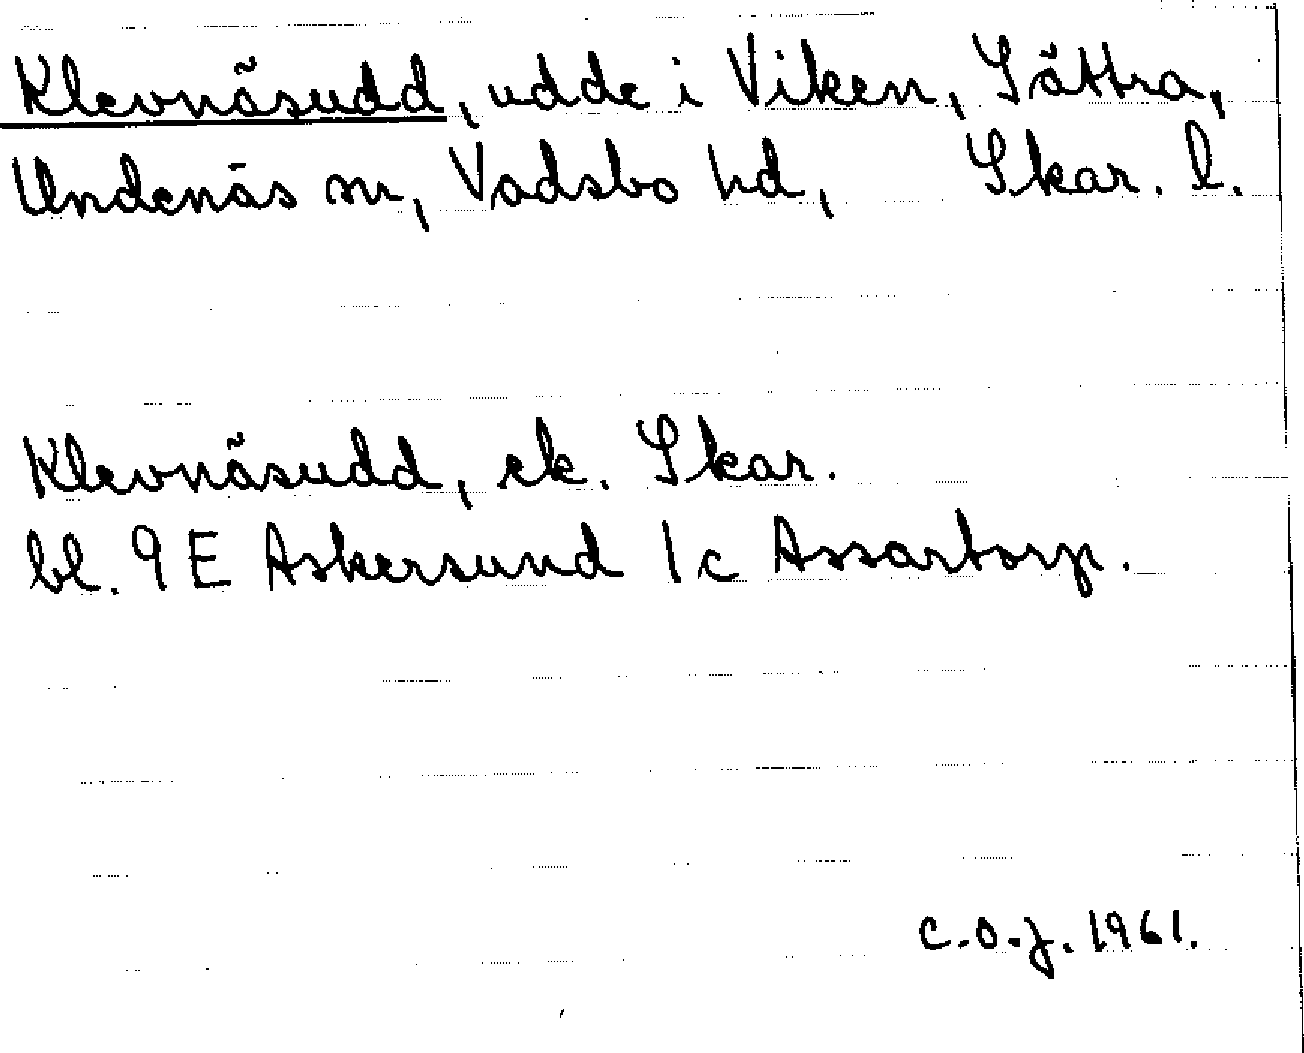 Klevnäsudd, udde i Viken, Sätra,
Undenäs sn, Vadsbo hd, Skar. l.
Klevnäsudd, ek. Skar.
bl. 9 E Askersund 1c Assartorp.
C.O.J. 1961.